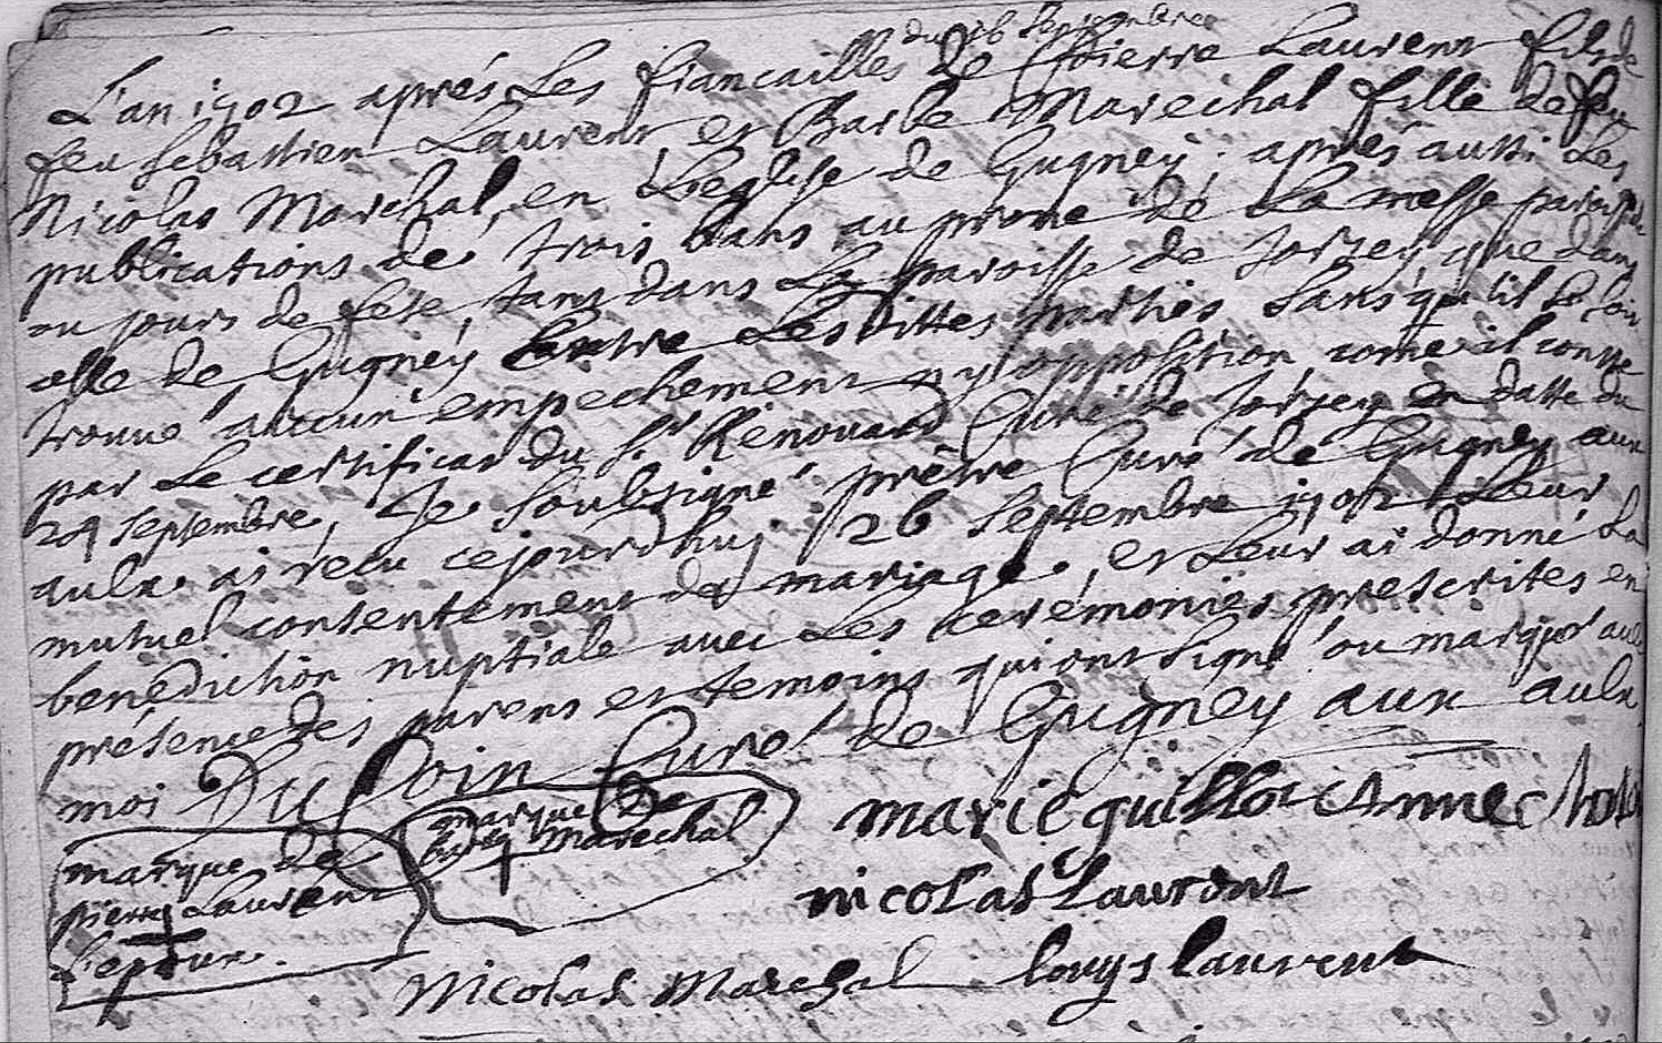 du 26 Septembre
L'an 1702 aprés Les fiancailles de Pierre Laurent fils de
feu Sebastien Laurent, et Barbe Marechal fille de feu
Nicolas Marchal, en L'eglise de Gugney; aprés aussi Les
publications de trois bans au prone de La messe paroiss
ou jours de féte, tant dans La paroisse de Forsey, que dans
celle de Gugney Entre Les dittes parties sans qu'il se soit
trouué aucun empechement ny opposition, come il conste
par Le certificat du Sr Renouard Curé de Forsey en datte du
24 septembre, Je soubsigné prêtre Curé de Gugney aux
aulx ai récu cejourdhuy 26 septembre 1702 Leur
mutuel consentement de mariage, et Leur ai donné La
benediction nuptiale avec Les cerémonies prescrites en
présence des parens et temoins qui ont signé ou marqué auec
moi Dufoin Curé de Gugney aux aulx
marque de
barbe Marechal
marie guillot Anne
marque de
pierre Laurent
L'epoux.
nicolas Laurant
Nicolas Marchal Louys Laurent